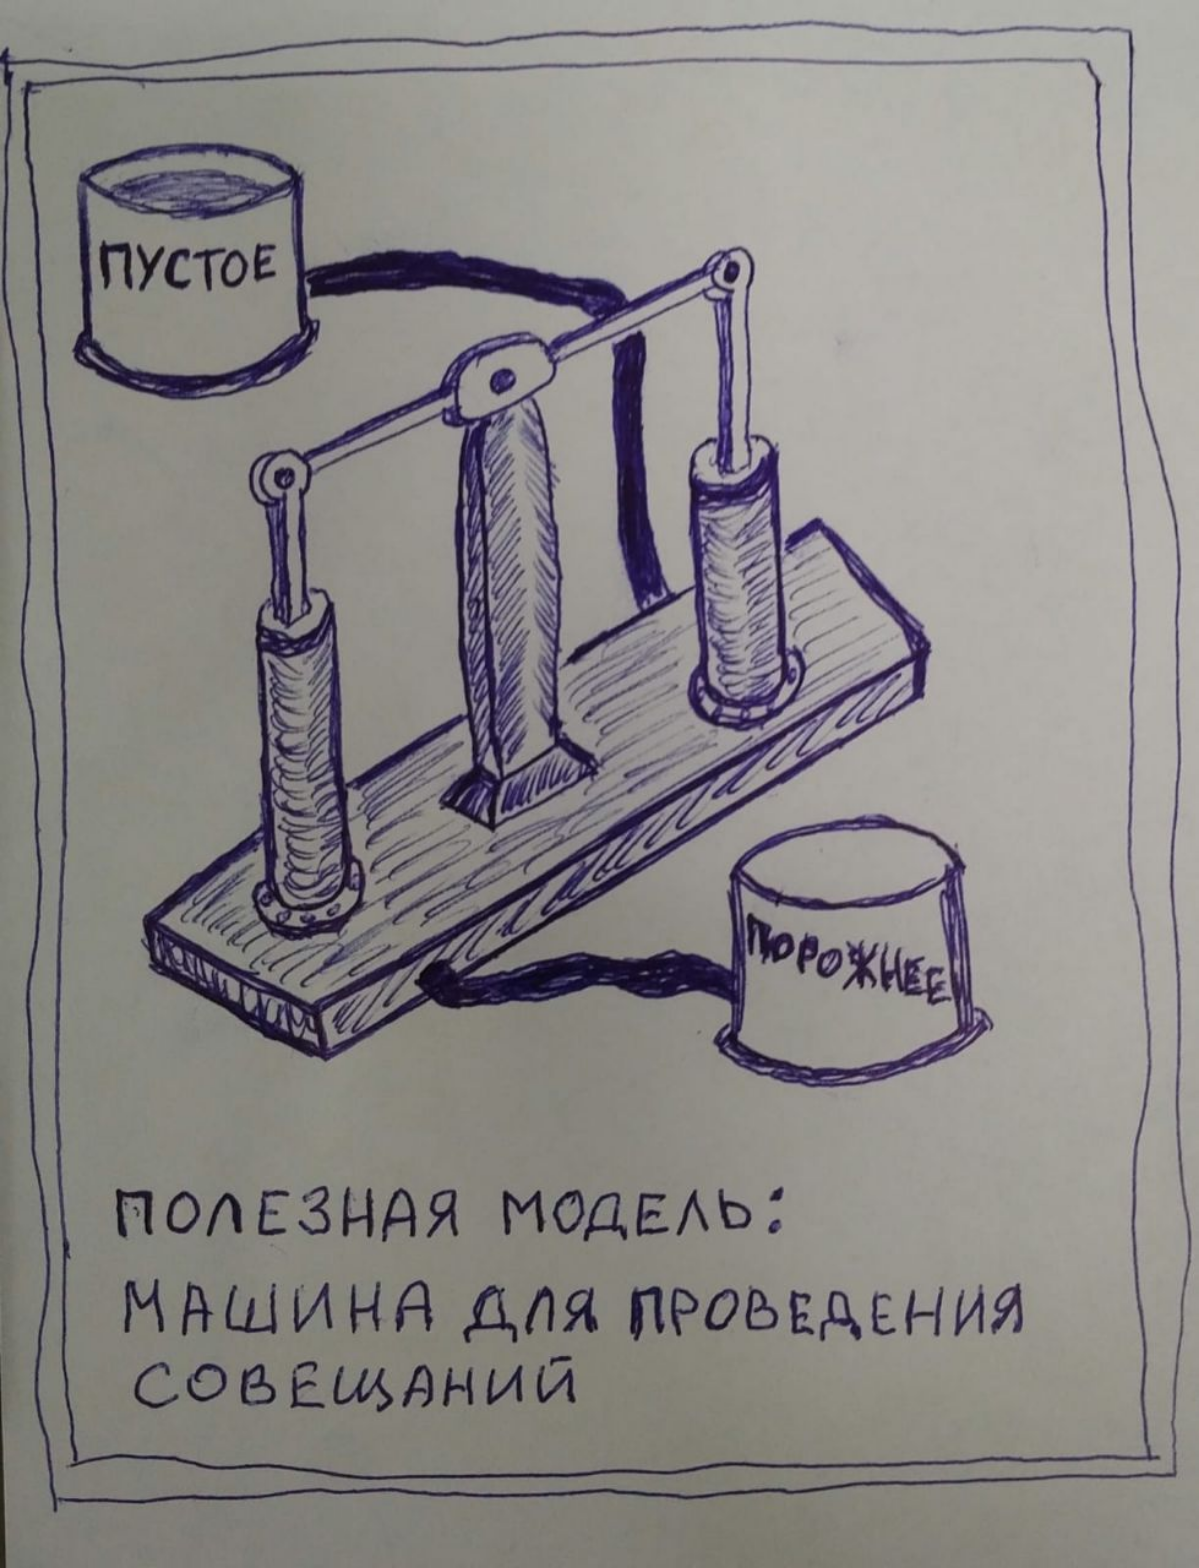 ПУСТОЕ
ПОРОЖНЕЕ
ПОЛЕЗНАЯ МОДЕЛЬ:
МАШИНА ДЛЯ ПРОВЕДЕНИЯ
СОВЕЩАНИЙ